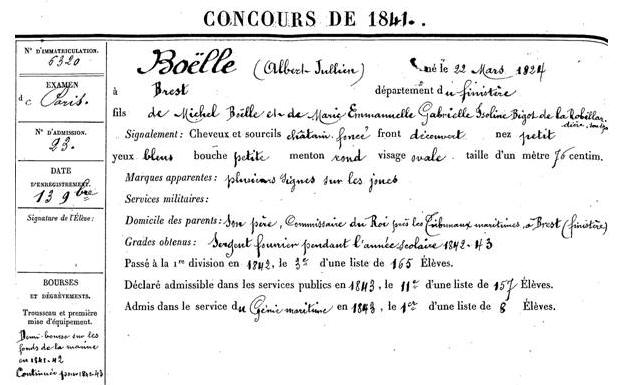 CONCOURS DE 1841.
N° D'IMMATRICULATION.
6320
EXAMEN
de Paris.
N° D'ADMISSION.
23.
DATE
D'ENREGISTREMENT.
13 9bre
Signature de l'Élève:
BOURSES
ET DÉGRÈVEMENTS.
Trousseau et première
mise d'équipement.
Demi-bourse sur les
fonds de la marine
en 1841-42
Continuée pour 1842-43
Boëlle (Albert-Jullien) né le 22 Mars 1824
à Brest département du finistère
fils de Michel Boëlle et de Marie Emmannuelle Gabrielle Isoline Bigot de la Robillar-
dière, son ép
Signalement: Cheveux et sourcils châtain foncé front découvert nez petit
yeux bleus bouche petite menton rond visage ovale. taille d'un mètre 76 centim.
Marques apparentes: plusieurs signes sur les joues
Services militaires:
Domicile des parents: Son père, Commissaire du Roi près les Tribunaux maritimes, à Brest (finistère)
Grades obtenus: Sergent fourrier pendant l'année scolaire 1842-43
Passé à la 1re division en 1842, le 3e d'une liste de 165 Élèves.
Déclaré admissible dans les services publics en 1843, le 11e d'une liste de 157 Élèves.
Admis dans le service du Génie maritime en 1843, le 1er d'une liste de 8 Élèves.